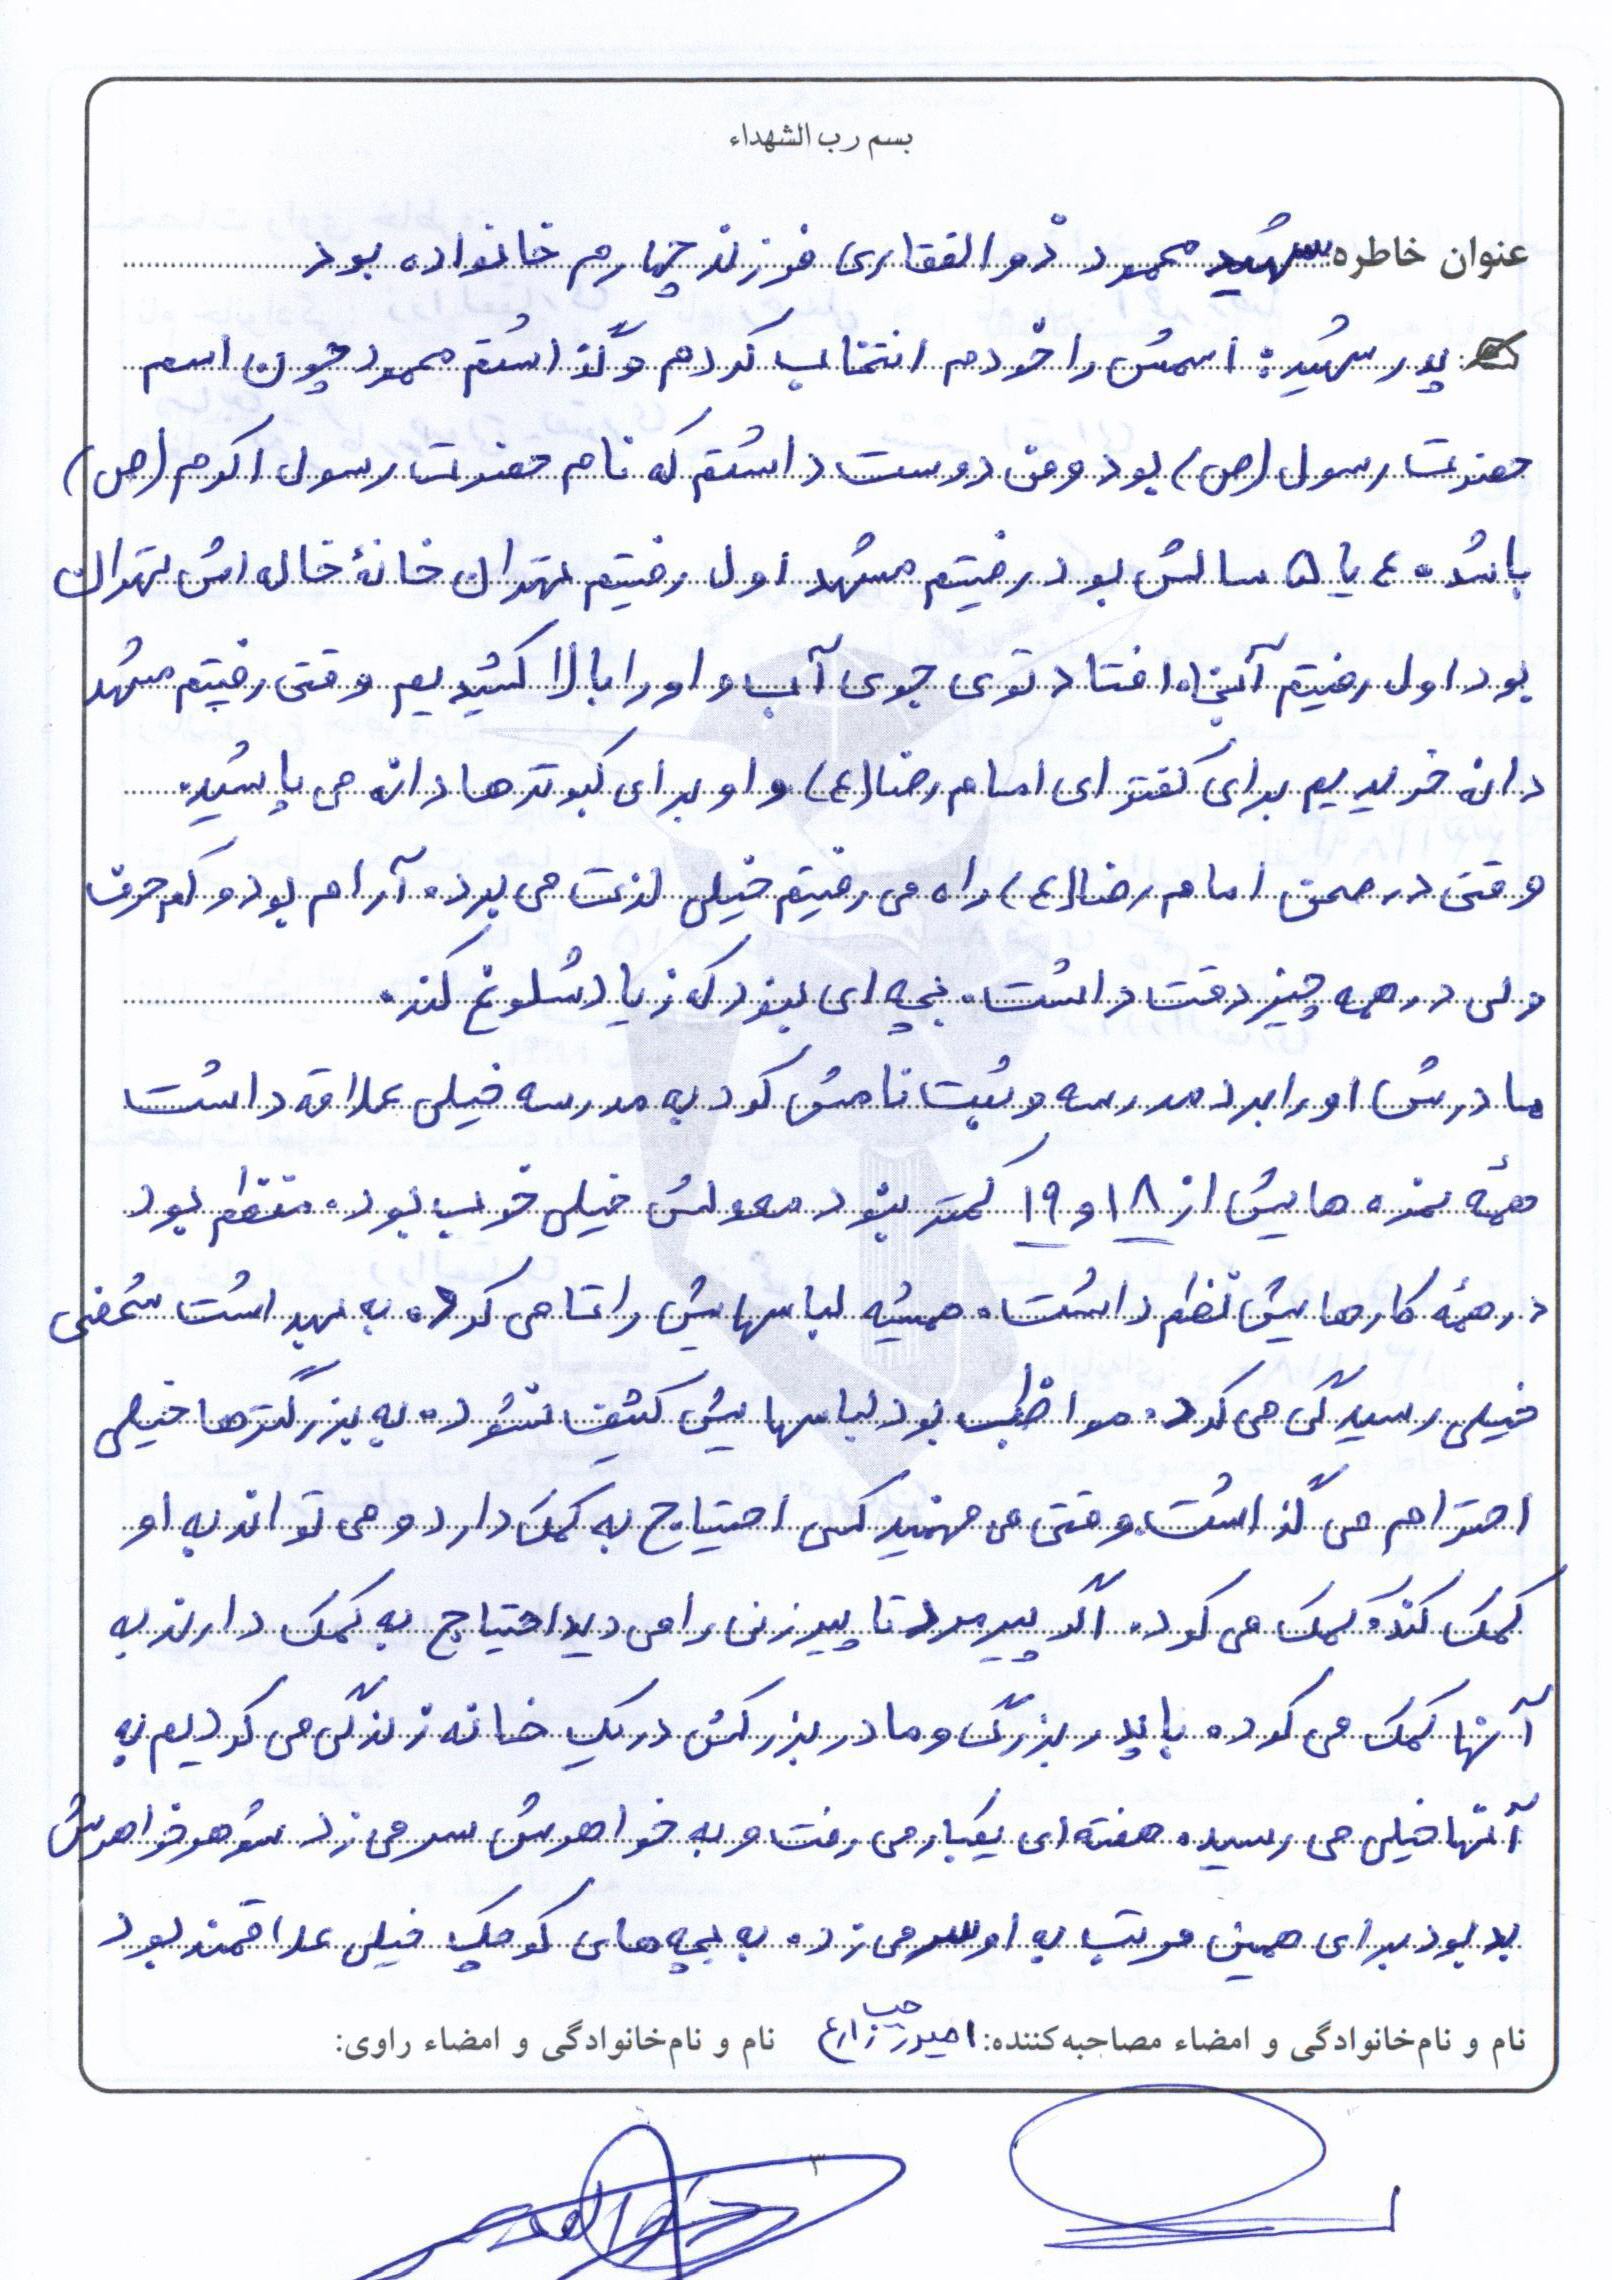 بسم رب الشهداء
عنوان خاطره شهید محمود ذوالفقاری فرزند چهارم خانواده بود
پدر شهید: اسمش را خودم انتخاب کردم و گذاشتم محمود چون اسم
حضرت رسول (ص) بود و من دوست داشتم که نام حضرت رسول اکرم (ص)
باشد. ٤ یا ۵ سالش بود رفتیم مشهد اول رفتیم تهران خانۀ خاله اش تهران
بود اول رفتیم آنجا افتاد توی جوی آب و او را بالا کشیدیم وقتی رفتیم مشهد
دانه خریدیم برای کفترای امام رضا (ع) و او برای کبوترها دانه می پاشید.
وقتی در صحن امام رضا (ع) راه می رفتیم خیلی لذت می برد. آرام بود و کم حرف
ولی در همه چیز دقت داشت. بچه ای نبود که زیاد شلوغ کند.
مادرش او را برد مدرسه و ثبت نامش کرد به مدرسه خیلی علاقه داشت
همۀ نمره هایش از ۱۸ و ۱۹ کمتر نبود معدلش خیلی خوب بود. منظم بود
در همۀ کارهایش نظم داشت. همیشه لباسهایش را تا می کرد. به بهداشت شخصی
خیلی رسیدگی می کرد. مواظب بود لباسهایش کثیف نشود. به بزرگترها خیلی
احترام می گذاشت. وقتی می فهمید کسی احتیاج به کمک دارد و می تواند به او
کمک کند، کمک می کرد. اگر پیرمرد تا پیرزنی را می دید احتیاج به کمک دارند به
آنها کمک می کرد. با پدر بزرگ و مادر بزرگش در یک خانه زندگی می کردیم به
آنها خیلی می رسید. هفته ای یکبار می رفت و به خواهرش سر می زد شوهر خواهرش
بد بود برای همین مرتب به او سر می زد. به بچه های کوچک خیلی علاقمند بود
نام و نام‌خانوادگی و امضاء مصاحبه‌کننده: زارع نام و نام‌خانوادگی و امضاء راوی:
۳